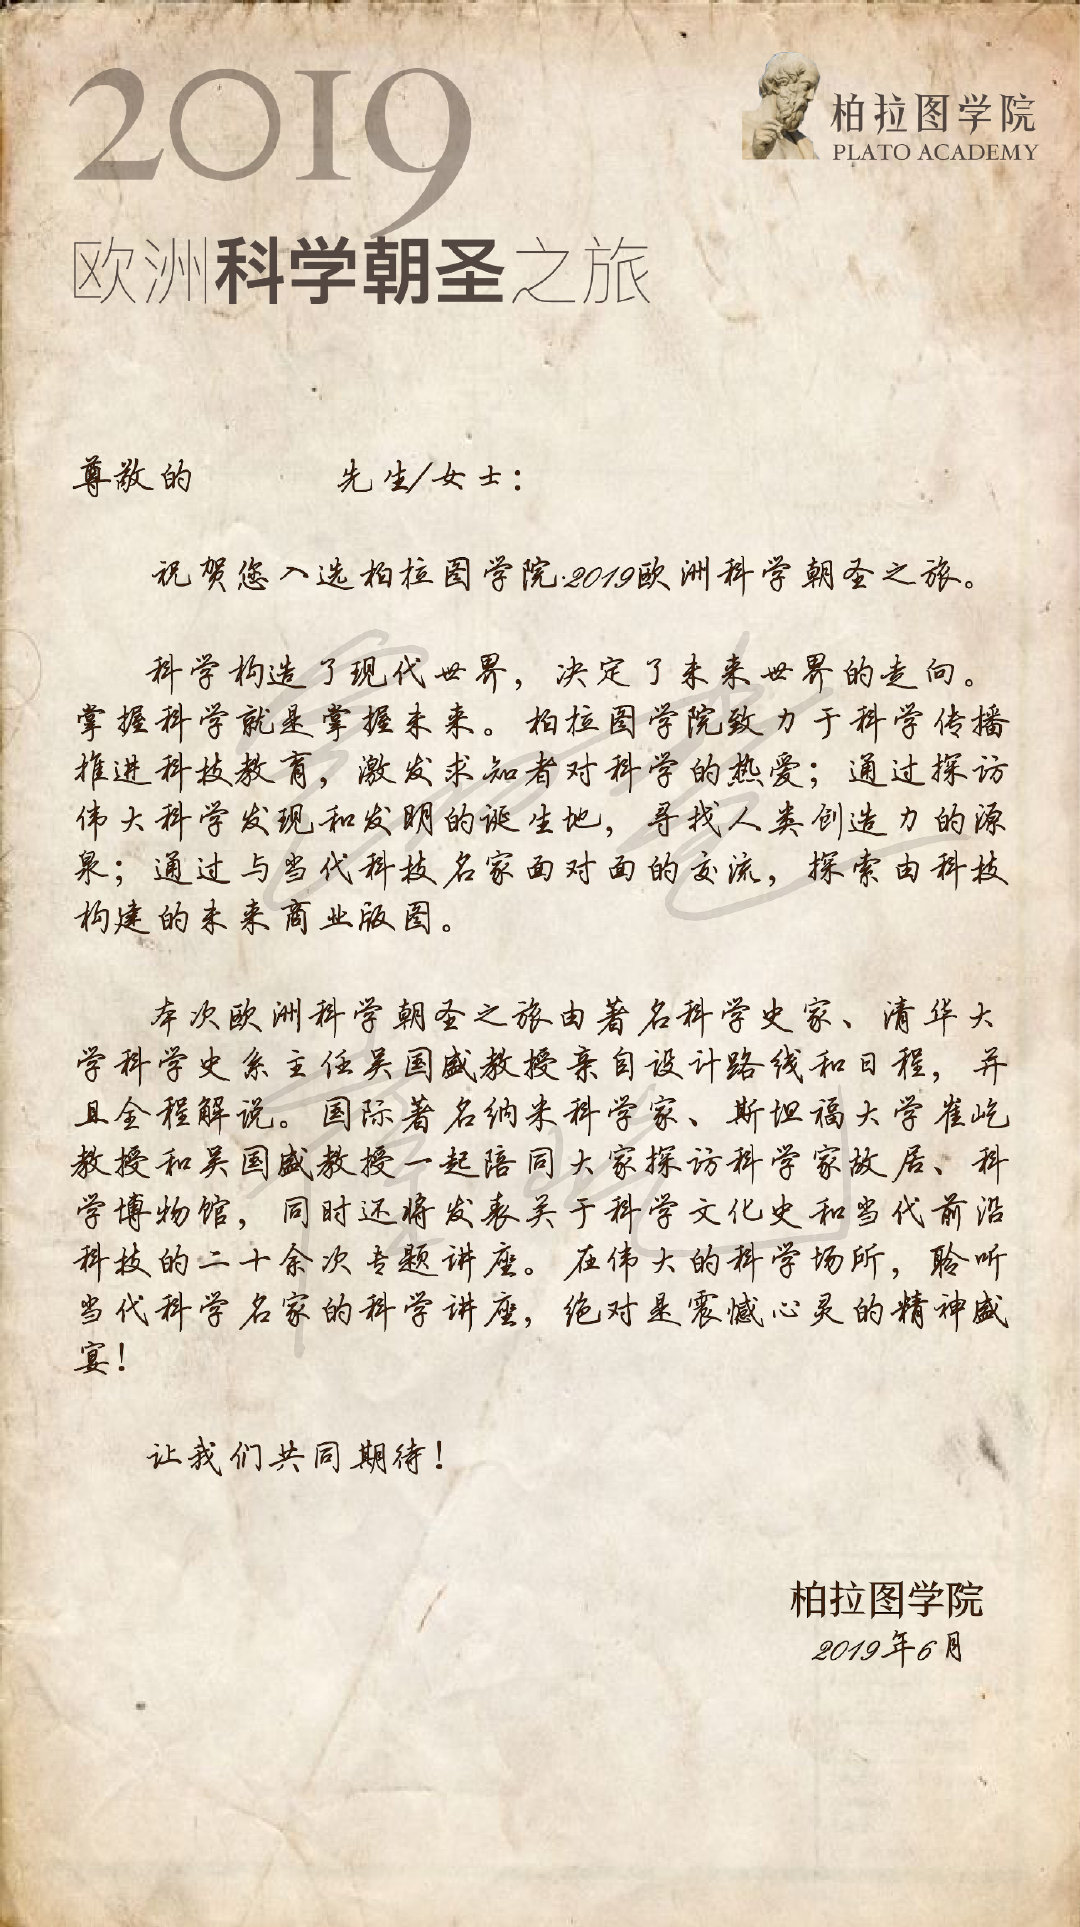 2019
柏拉图学院
PLATO ACADEMY
欧洲科学朝圣之旅
尊敬的 先生/女士：
祝贺您入选柏拉图学院·2019欧洲科学朝圣之旅。
科学构造了现代世界，决定了未来世界的走向。
掌握科学就是掌握未来。柏拉图学院致力于科学传播
推进科技教育，激发求知者对科学的热爱；通过探访
伟大科学发现和发明的诞生地，寻找人类创造力的源
泉；通过与当代科技名家面对面的交流，探索由科技
构建的未来商业版图。
本次欧洲科学朝圣之旅由著名科学史家、清华大
学科学史系主任吴国盛教授亲自设计路线和日程，并
且全程解说。国际著名纳米科学家、斯坦福大学崔屹
教授和吴国盛教授一起陪同大家探访科学家故居、科
学博物馆，同时还将发表关于科学文化史和当代前沿
科技的二十余次专题讲座。在伟大的科学场所，聆听
当代科学名家的科学讲座，绝对是震憾心灵的精神盛
宴！
让我们共同期待！
柏拉图学院
2019年6月